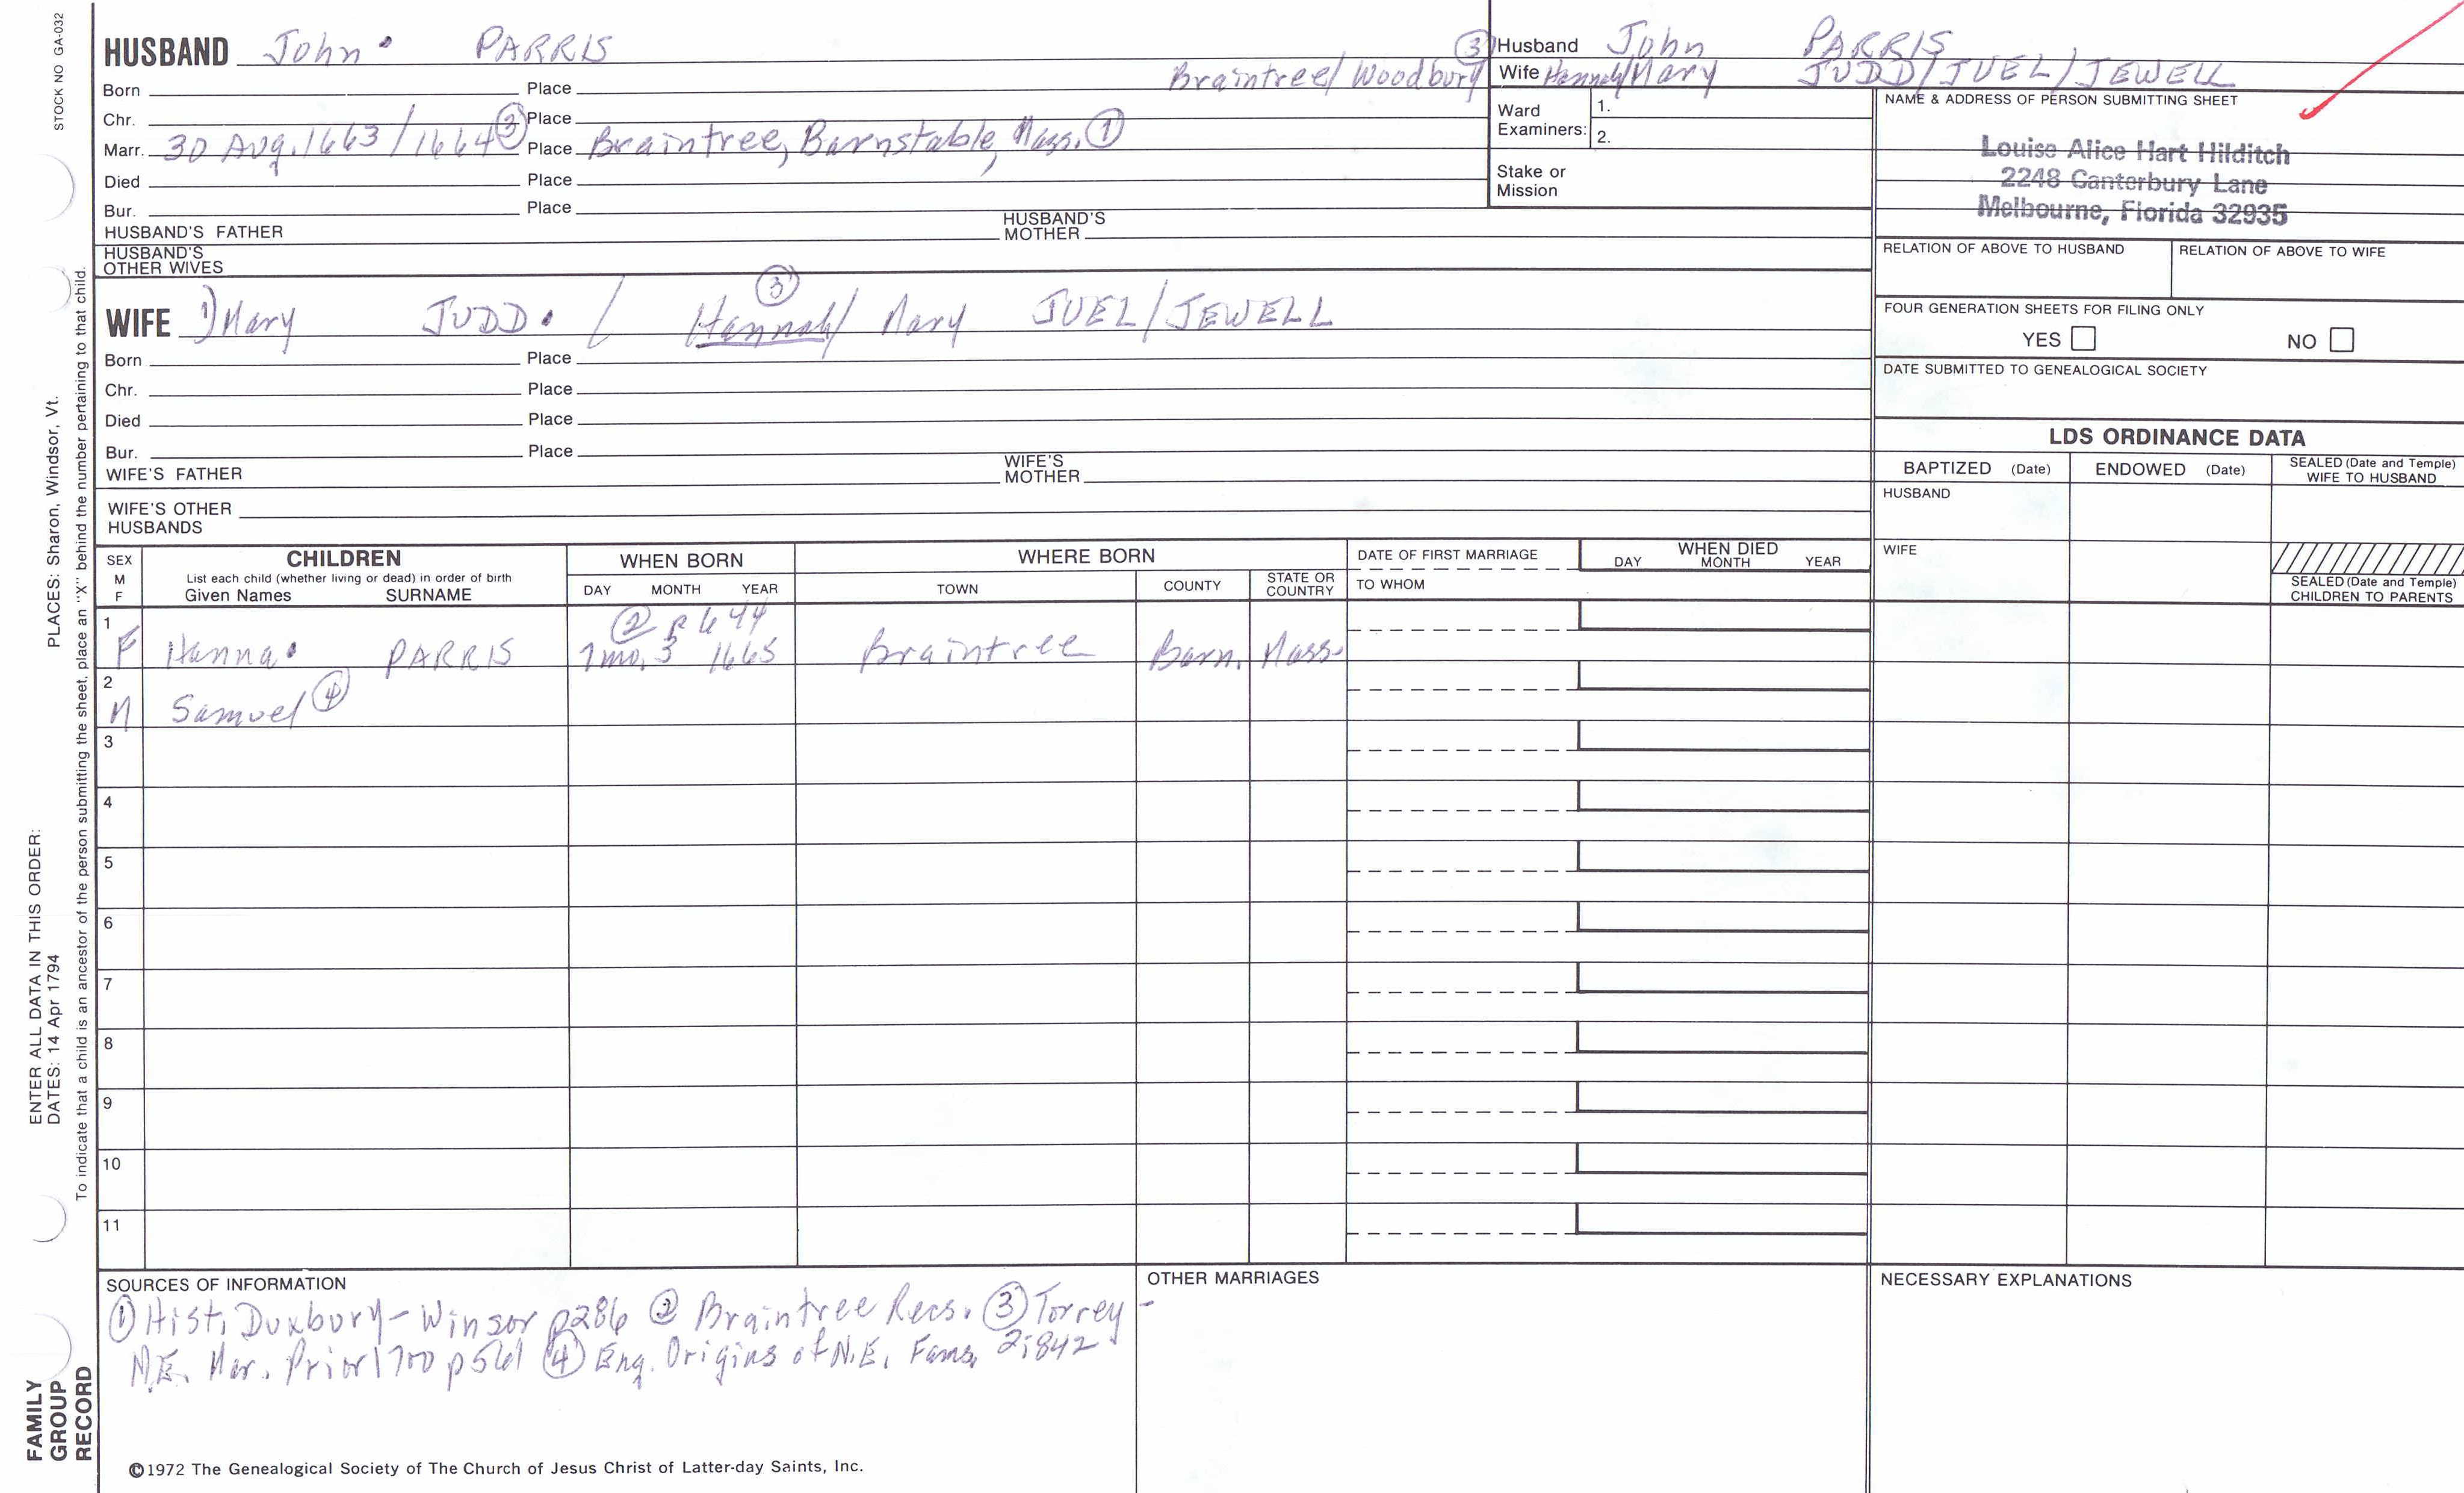 STOCK NO GA-032
HUSBAND John PARRIS
Braintree/Woodbury ③
Born Place
Chr. Place
Marr. 30 Aug. 1663/1664 ③ Place Braintree, Barnstable, Mass. ①
Died Place
Bur. Place
HUSBAND'S FATHER HUSBAND'S MOTHER
HUSBAND'S OTHER WIVES
Husband John PARRIS
Wife Hannah/Mary JUDD/JUEL/JEWELL
Ward Examiners: 1.
2.
Stake or Mission
NAME & ADDRESS OF PERSON SUBMITTING SHEET
Louise Alice Hart Hilditch
2248 Canterbury Lane
Melbourne, Florida 32935
RELATION OF ABOVE TO HUSBAND RELATION OF ABOVE TO WIFE
FOUR GENERATION SHEETS FOR FILING ONLY
YES NO
DATE SUBMITTED TO GENEALOGICAL SOCIETY
③
WIFE 1) Mary JUDD. / Hannah/ Mary JUEL/JEWELL
Born Place
Chr. Place
Died Place
Bur. Place
WIFE'S FATHER WIFE'S MOTHER
WIFE'S OTHER HUSBANDS
LDS ORDINANCE DATA
BAPTIZED (Date) ENDOWED (Date) SEALED (Date and Temple) WIFE TO HUSBAND
HUSBAND
WIFE
SEALED (Date and Temple) CHILDREN TO PARENTS
SEX M F
CHILDREN
List each child (whether living or dead) in order of birth
Given Names SURNAME
WHEN BORN
DAY MONTH YEAR
WHERE BORN
TOWN COUNTY STATE OR COUNTRY
DATE OF FIRST MARRIAGE
TO WHOM
WHEN DIED
DAY MONTH YEAR
② p 644
1 F Hanna PARRIS 7mo. 3 1665 Braintree Barn. Mass.
2 M Samuel ④
3
4
5
6
7
8
9
10
11
SOURCES OF INFORMATION
① Hist. Duxbury-Winsor p286 ② Braintree Recs. ③ Torrey-
N.E. Mar. Prior 1700 p561 ④ Eng. Origins of N.E. Fams. 2:842
OTHER MARRIAGES
NECESSARY EXPLANATIONS
©1972 The Genealogical Society of The Church of Jesus Christ of Latter-day Saints, Inc.
FAMILY
GROUP
RECORD
ENTER ALL DATA IN THIS ORDER:
DATES: 14 Apr 1794
PLACES: Sharon, Windsor, Vt.
To indicate that a child is an ancestor of the person submitting the sheet, place an "X" behind the number pertaining to that child.